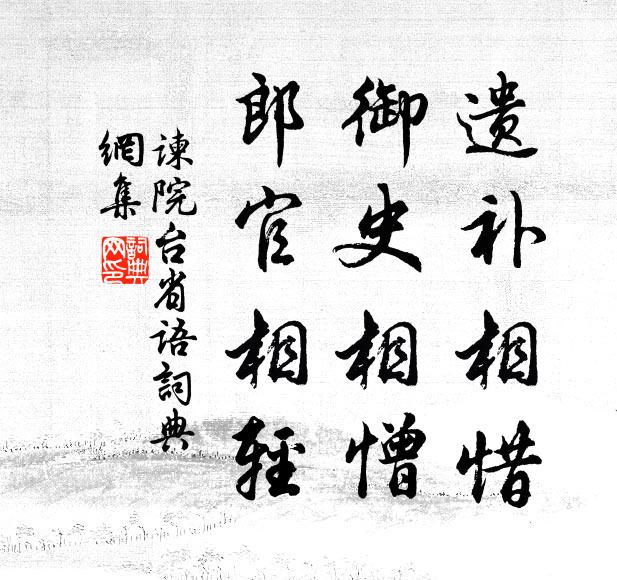 遗补相惜
御史相憎
郎官相轻
谏院台省语詞典
網集
詞典
网印